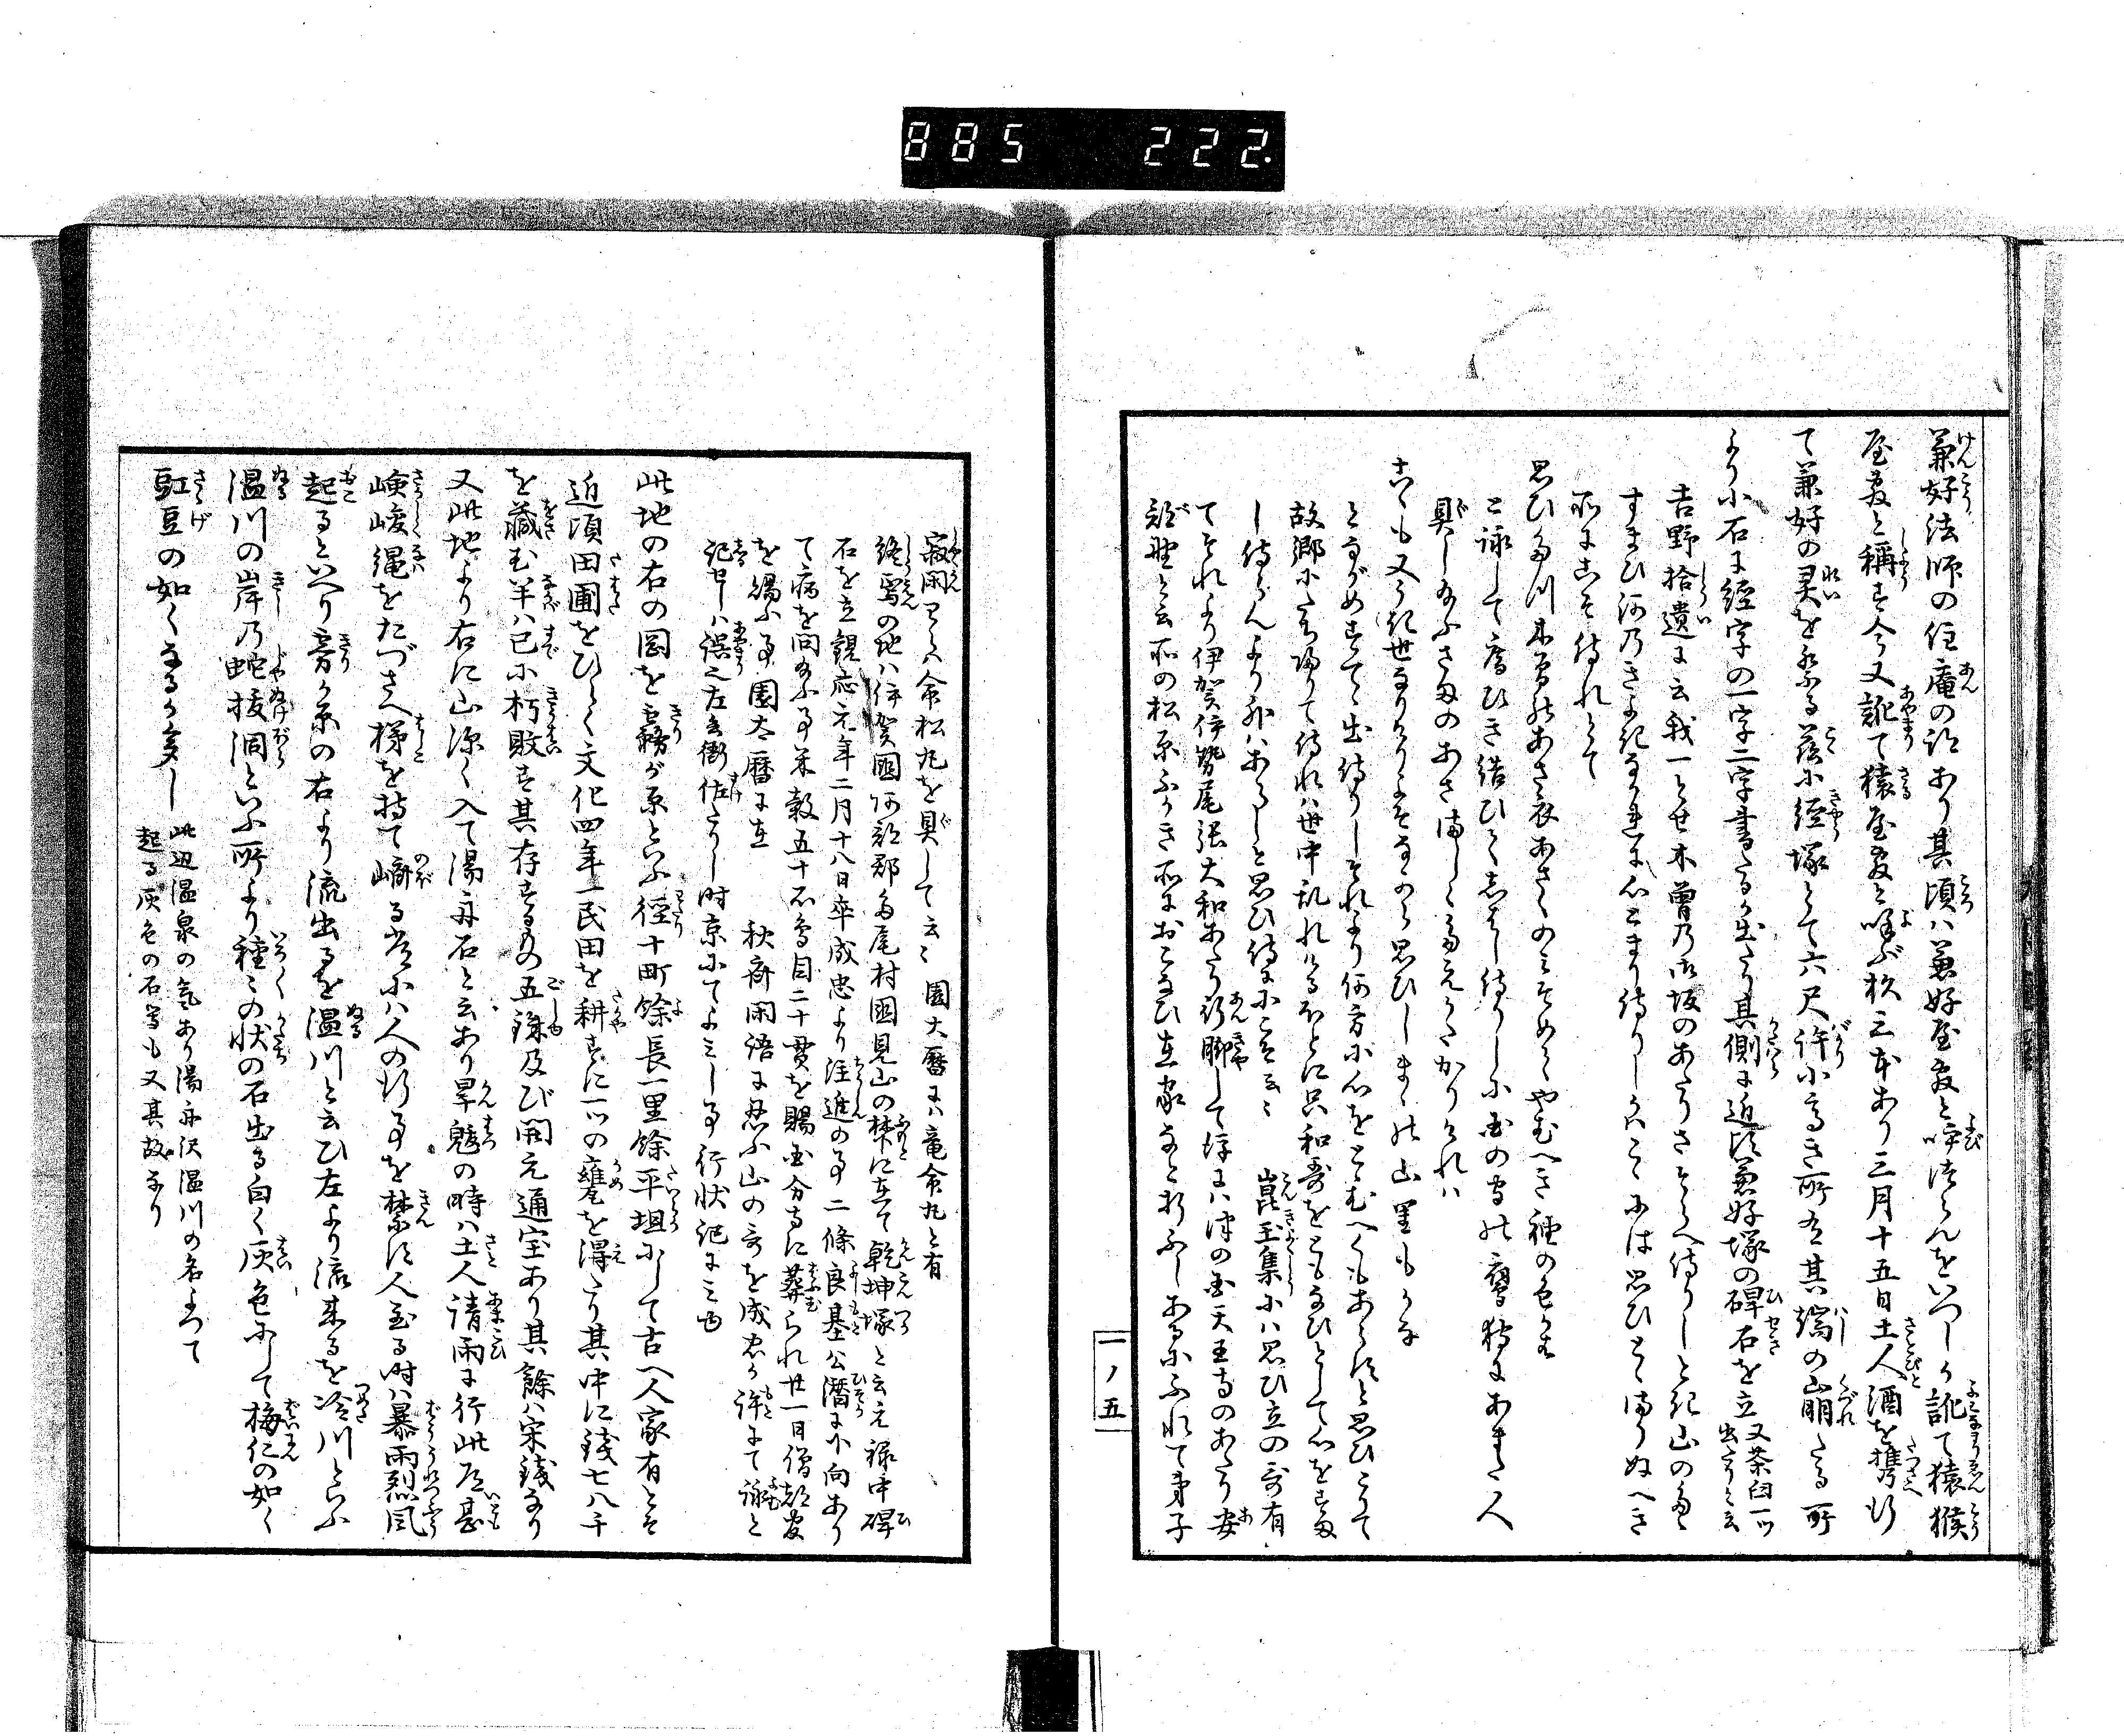 885 222.
兼好法師の住庵の跡あり其頃ハ兼好屋敷と呼けらんをいつしか訛て猿猴
屋敷と称す今又訛て猿屋敷と呼ぶ松三本あり三月十五日土人酒を携行
て兼好の霊を祭る茲に経塚とて六尺許小高き所有其端の山崩たる所
より小石に経字の一字二字書たるか出たり其側に近頃兼好塚の碑石を立 又茶臼一ツ出たりと云
吉野拾遺に云我一とせ木曽乃御坂のあたりさそらへ侍りしとき山のたゝ
すまひ河乃きよきなかれに心とまり侍りしかはこゝには思ひとゝまりぬへき
所にこそ侍れとて
思ひたつ木曽のあさ衣あさくのみそめてやむへき袖の色かは
と詠して庵ひき結ひて志はし侍りしに国の守の鷹狩にあまた人
具し給ふさまのあさましくたえかたかりけれハ
こゝも又うき世なりけりよそなから思ひしまゝの山里もかな
となかめすてゝ出侍りしそれより何方に心をとゝむへくもあらすと思ひとりて
故郷にたち帰りて侍れハ世中乱れけるほとに只和哥をともなひとして心をすま
し侍らんより外ハあらしと思ひ侍るにこそ云々 崑玉集にハ思ひ立の哥有
てそれより伊賀伊勢尾張大和あたり行脚して後にハ津の国天王寺のあたり安
部野と云所の松原ふかき所におこなひ在家なと折ふしあるにふれて弟子
一ノ五
寂閑とて命松丸を具して云々 園大暦にハ竜命丸と有
終焉の地ハ伊賀国阿部郡田尾村国見山の禁に在て乾坤塚と云元禄中碑
石を立観応元年二月十八日卒成忠より注進の事二條良基公潜に下向あり
て病を問給ふ事米穀五十石鳥目二十貫を賜国分寺に葬られ廿一日僧都官
を賜ふ事園太暦に在 秋斎閑語に忍ふ山の哥を成忠か許にて詠と
記せしハ誤也左兵衛佐たりし時京にてよみし事行状記にミゆ
此地の右の岡を霧が原といふ径十町餘長一里餘平坦にして古へ人家有とそ
近頃田圃をひらく文化四年一民田を耕すに一ツの甕を得たり其中に銭七八千
を蔵む半ハ已に朽敗す其存するもの五銖及び開元通宝あり其餘ハ宋銭なり
又此地より右に山深く入て湯舟石と云あり旱魃の時ハ土人請雨に行此道甚
嶮峻縄をたづさへ梯を持て崎る常にハ人の行事を禁ず人至る時ハ暴雨烈風
起るといへり霧か原の右より流出るを温川と云ひ左より流来るを冷川といふ
温川の岸乃蛇抜洞といふ所より種々の状の石出る白く灰色にして梅仁の如く
豇豆の如くなるか多し 此辺温泉の気あり湯舟沢温川の名よつて
起る灰色の石等も又其故なり